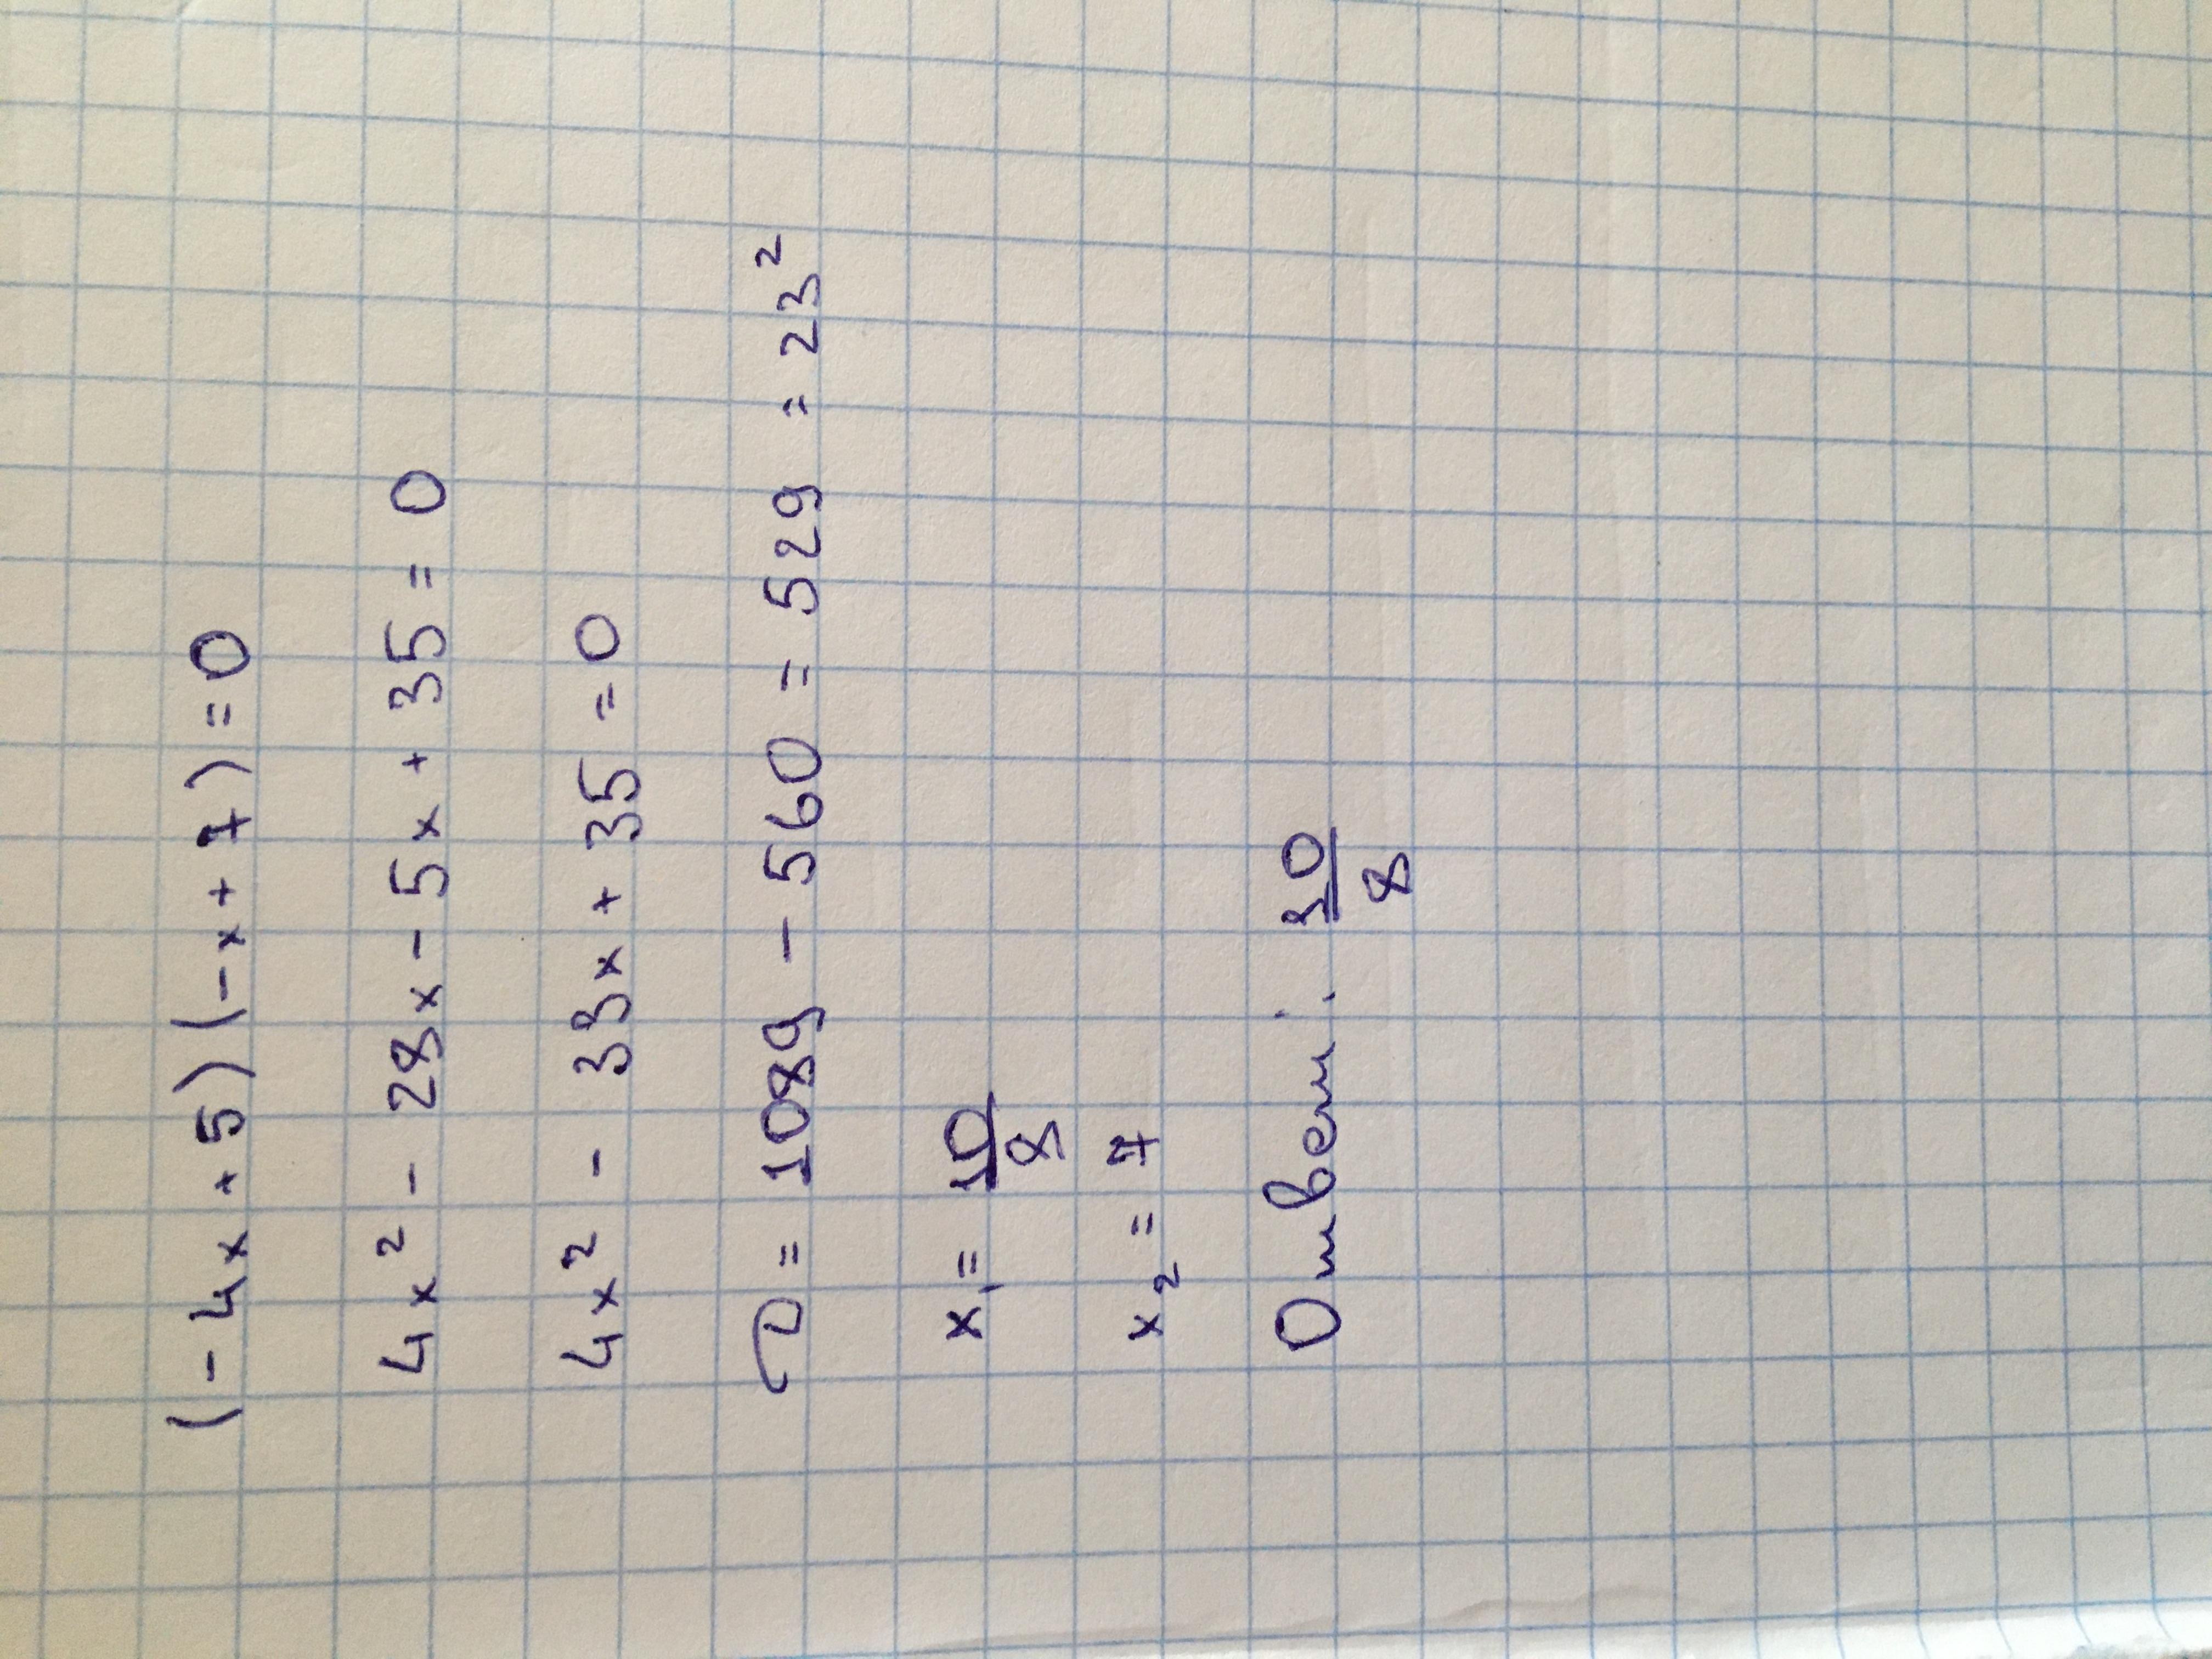 (-4x+5)(-x+7)=0
4x² - 28x-5x+35=0
4x² - 33x+35=0
D= 1089-560=529=23²
x₁= 10/8
x₂=7
Ответ: 10/8